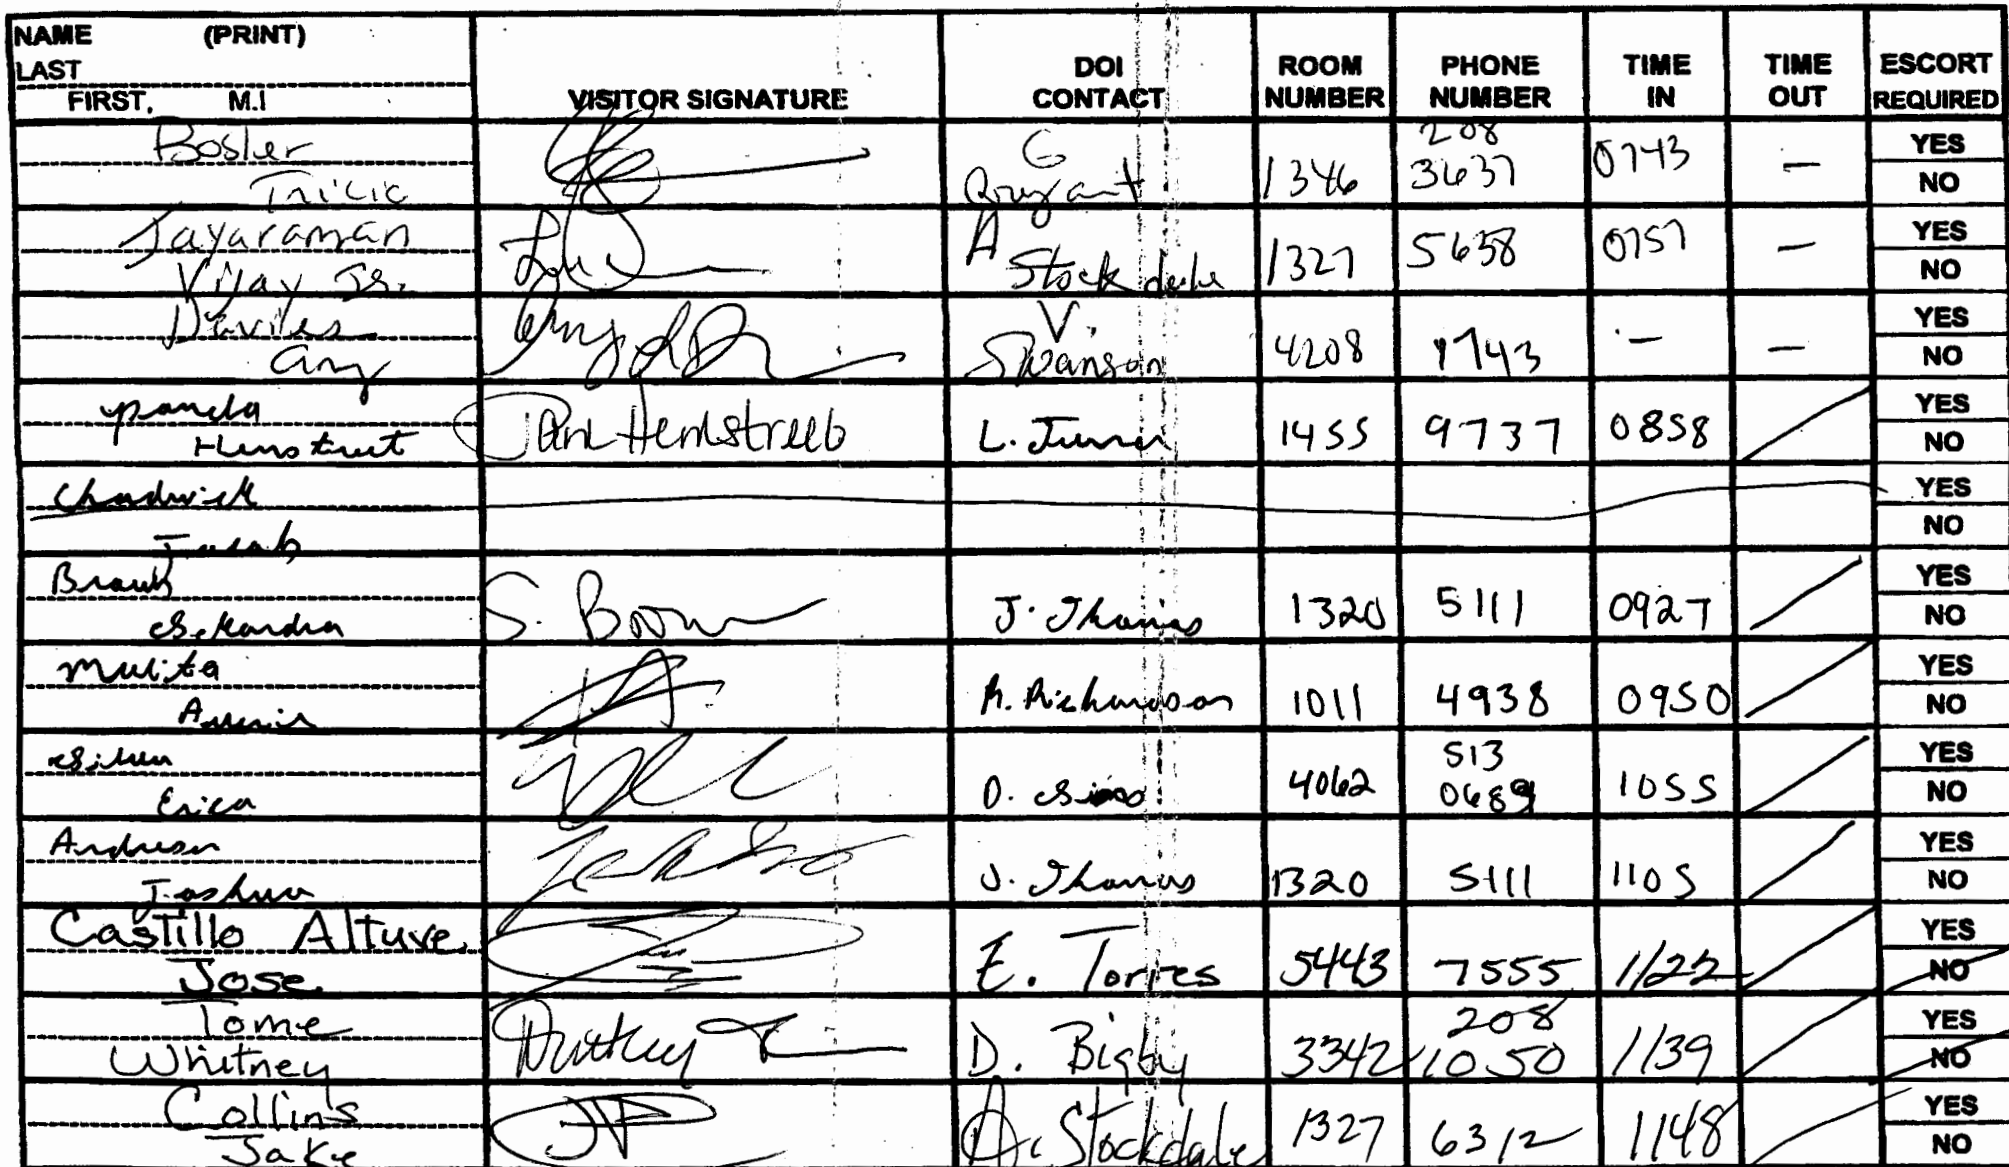 NAME (PRINT)
LAST
FIRST, M.I
VISITOR SIGNATURE
DOI CONTACT
ROOM NUMBER
PHONE NUMBER
TIME IN
TIME OUT
ESCORT REQUIRED
Bosler
Tricia
G Bryant 1346 208 3637 0743 — YES NO
Jayaraman
Vijay Jr.
A Stockdale 1327 5638 0757 — YES NO
Daviles
Amy
V. Swanson 4208 1743 — — YES NO
Pamela
Hemstreet
Pam Hemstreet L. Turner 1455 9737 0858 YES NO
Chadwick
Jacob
YES NO
Brown
S. Brown J. Thomas 1320 5111 0927 YES NO
R. Richardson 1011 4938 0950 YES NO
Erica
D. 4062 513 0689 1055 YES NO
Anderson
Joshua
J. Thomas 1320 5111 1105 YES NO
Castillo Altuve
Jose
E. Torres 5443 7555 1122 YES NO
Tome
Whitney
D. Bigby 3342 208 1050 1139 YES NO
Collins
Jake
A. Stockdale 1327 6312 1148 YES NO